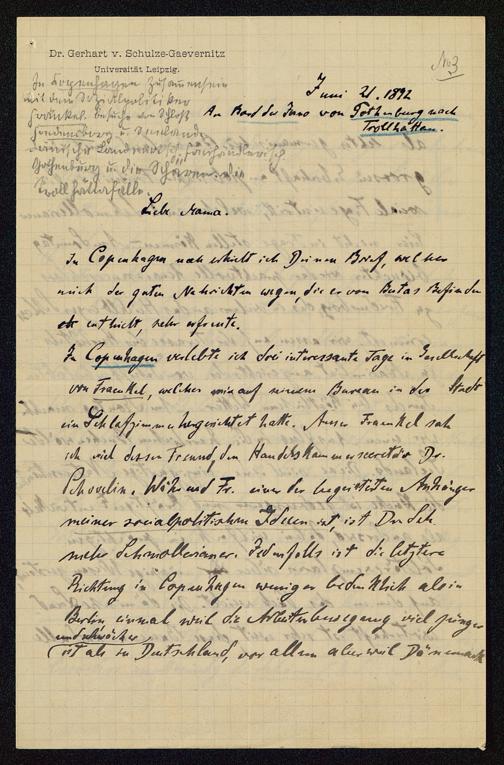 Dr. Gerhart v. Schulze-Gaevernitz
Universität Leipzig.
No 3
In Kopenhagen Zusammensein
mit dem Sozialpolitiker
Fraenkel. Besuche des Schloß
Gothenburg u. die Schären. die
Trollhättafälle.
Juni 21. 1892
An Bord der Juno von Gothenburg nach
Trollhättan.
Liebe Mama.
In Copenhagen noch erhielt ich Deinen Brief, welcher
mich der guten Nachrichten wegen, die er von Bertas Befinden
enthielt, sehr erfreute.
In Copenhagen verlebte ich drei interessante Tage in Gesellschaft
von Fraenkel, welcher mir auf seinem Bureau in der Stadt
ein Schlafzimmer hergerichtet hatte. Ausser Fraenkel sah
ich viel dessen Freund, den Handelskammersecretär Dr.
Schovelin. Während Fr. einer der begeistertsten Anhänger
meiner socialpolitischen Ideen ist, ist Dr. Sch.
mehr Schmollerianer. Jedenfalls ist die letztere
Richtung in Copenhagen weniger bedenklich als in
Berlin einmal weil die Arbeiterbewegung viel jünger
und schwächer
ist als in Deutschland, vor allem aber weil Dänemark